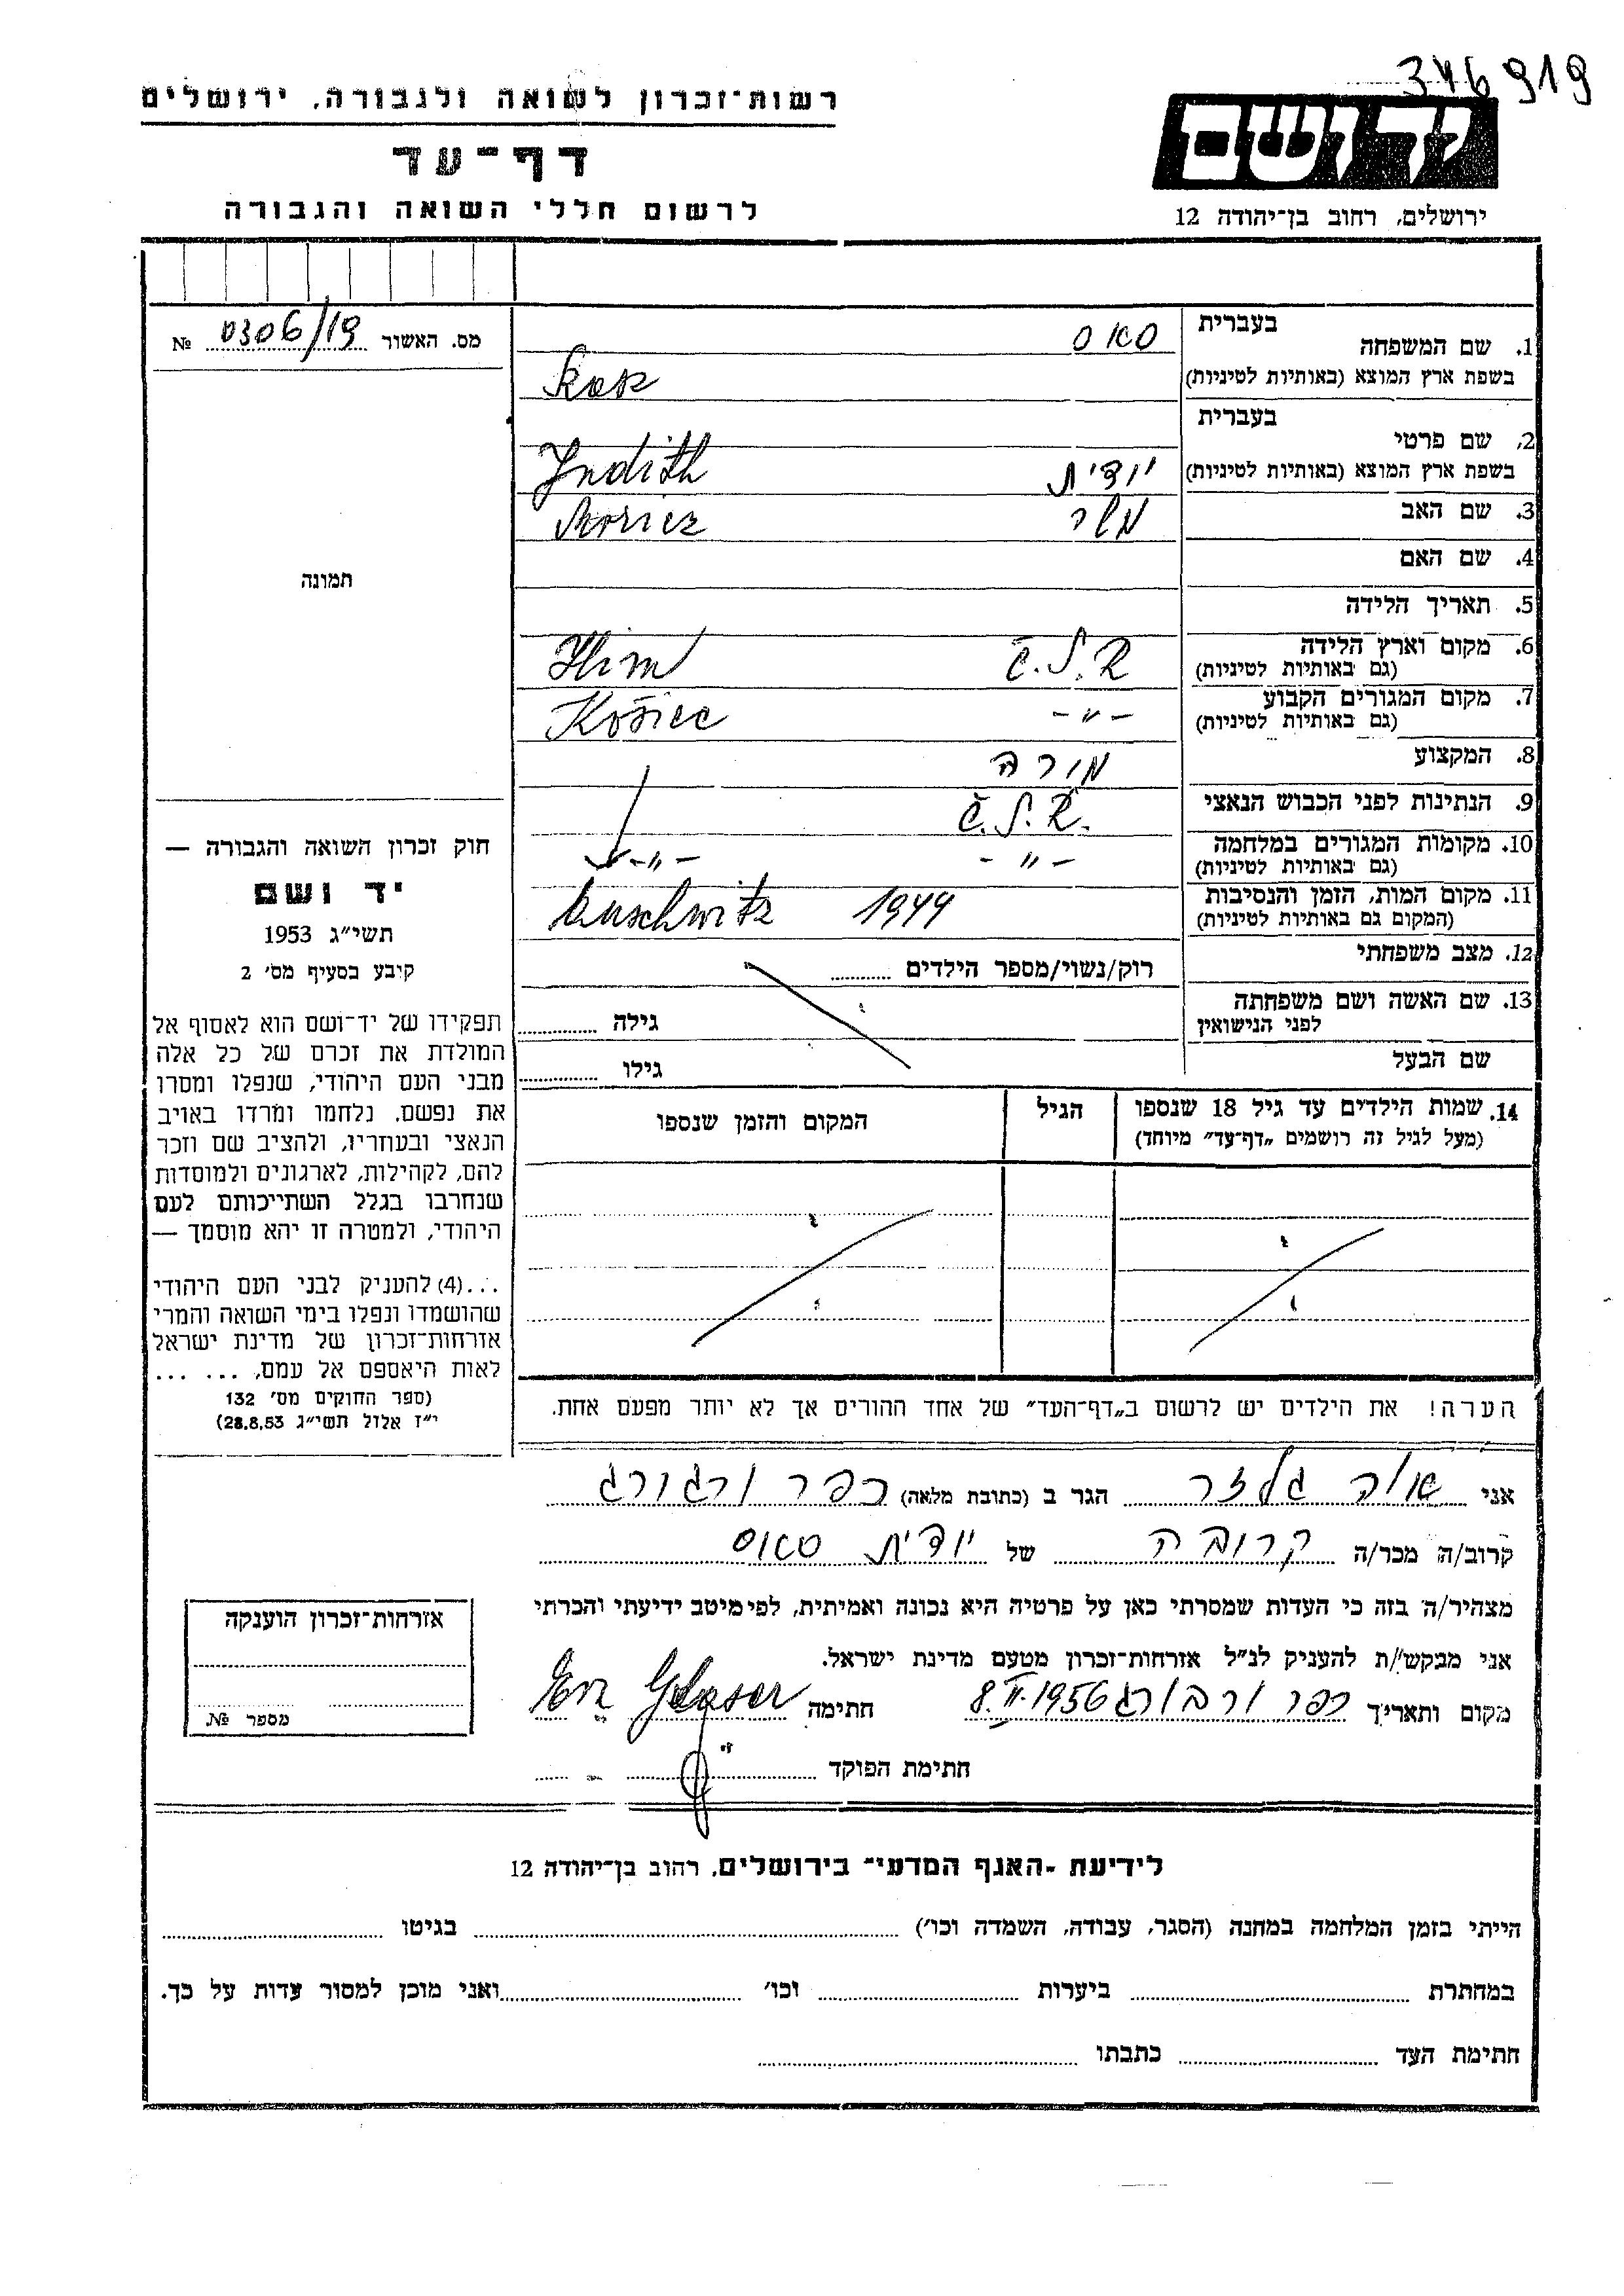 346919
רשות־זכרון לשואה ולגבורה, ירושלים
דף־עד
לרשום חללי השואה והגבורה
יד ושם
ירושלים, רחוב בן־יהודה 12
מס. האשור 0306/19 №
תמונה
1. שם המשפחה בעברית סאוס
בשפת ארץ המוצא (באותיות לטיניות)
2. שם פרטי בעברית
בשפת ארץ המוצא (באותיות לטיניות) יודית Judith
3. שם האב Moricz
4. שם האם
5. תאריך הלידה
6. מקום וארץ הלידה Č.S.R
(גם באותיות לטיניות)
7. מקום המגורים הקבוע -״- Košice
(גם באותיות לטיניות)
8. המקצוע מורה
9. הנתינות לפני הכבוש הנאצי Č.S.R.
10. מקומות המגורים במלחמה -״- -״-
(גם באותיות לטיניות)
11. מקום המות, הזמן והנסיבות Auschwitz 1944
(המקום גם באותיות לטיניות)
12. מצב משפחתי רוק/נשוי/מספר הילדים
13. שם האשה ושם משפחתה
לפני הנישואין גילה
שם הבעל גילו
14. שמות הילדים עד גיל 18 שנספו הגיל המקום והזמן שנספו
(מעל לגיל זה רושמים „דף־עד״ מיוחד)
חוק זכרון השואה והגבורה —
יד ושם
תשי״ג 1953
קובע בסעיף מס׳ 2
תפקידו של יד־ושם הוא לאסוף אל
המולדת את זכרם של כל אלה
מבני העם היהודי, שנפלו ומסרו
את נפשם, נלחמו ומרדו באויב
הנאצי ובעוזריו, ולהציב שם וזכר
להם, לקהילות, לארגונים ולמוסדות
שנחרבו בגלל השתייכותם לעם
היהודי, ולמטרה זו יהא מוסמך —
...(4) להעניק לבני העם היהודי
שהושמדו ונפלו בימי השואה והמרי
אזרחות־זכרון של מדינת ישראל
לאות היאספם אל עמם, ... ...
(ספר החוקים מס׳ 132
י״ז אלול תשי״ג 28.8.53)
הערה! את הילדים יש לרשום ב„דף־העד״ של אחד ההורים אך לא יותר מפעם אחת.
אני אוה גלזר הגר ב (כתובת מלאה) כפר ורבורג
קרוב/ה מכר/ה קרובה של יודית סאוס
מצהיר/ה בזה כי העדות שמסרתי כאן על פרטיה היא נכונה ואמיתית, לפי מיטב ידיעתי והכרתי
אני מבקש/ת להעניק לנ״ל אזרחות־זכרון מטעם מדינת ישראל.
מקום ותאריך כפר ורבורג 8.II.1956 חתימה Eva Glaser
חתימת הפוקד
אזרחות־זכרון הוענקה
מספר №
לידיעת ־האגף המדעי־ בירושלים, רחוב בן־יהודה 12
הייתי בזמן המלחמה במחנה (הסגר, עבודה, השמדה וכו׳) בגיטו
במחתרת ביערות וכו׳ ואני מוכן למסור עדות על כך.
חתימת העד כתבתו